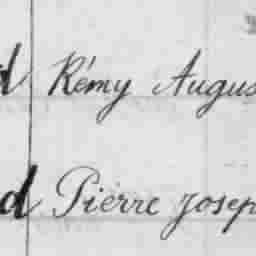 d Rémy Augus
d Pierre Josep